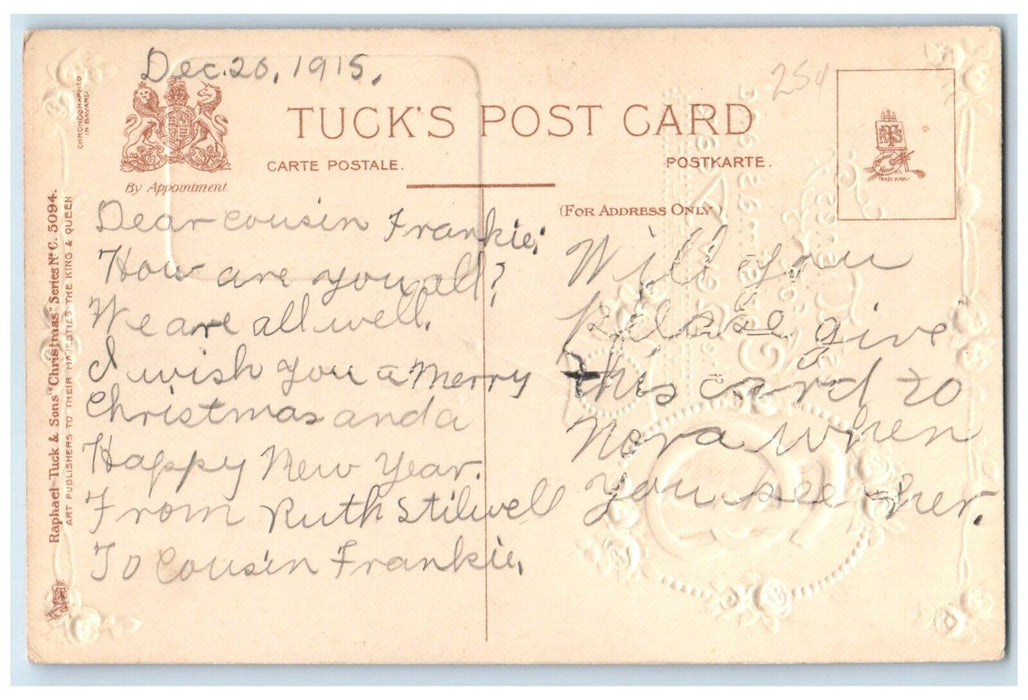 Dec. 20, 1915.
25¢
TUCK'S POST CARD
CARTE POSTALE.
POSTKARTE.
By Appointment
(FOR ADDRESS ONLY)
CHROMOGRAPHED
IN BAVARIA
Raphael Tuck & Sons' "Christmas" Series No. C. 5094.
ART PUBLISHERS TO THEIR MAJESTIES THE KING & QUEEN
TRADE MARK
Dear cousin Frankie;
How are you all?
We are all well.
I wish you a Merry
Christmas and a
Happy New Year.
From Ruth Stilwell
To Cousin Frankie.
Will you
please give
this card to
Nora when
you see her.